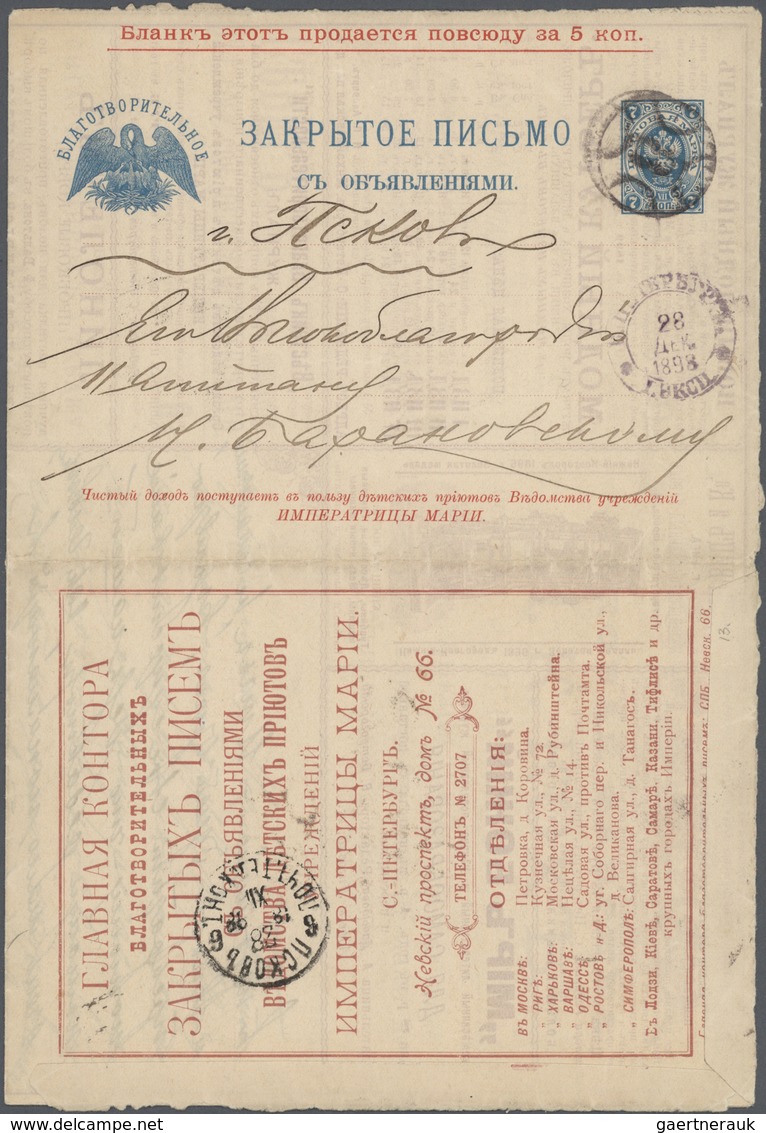 Бланкъ этотъ продается повсюду за 5 коп.
БЛАГОТВОРИТЕЛЬНОЕ
ЗАКРЫТОЕ ПИСЬМО
СЪ ОБЪЯВЛЕНІЯМИ.
7 7
7 7
г. Псковъ
Его Высокоблагородію
Капитану
Барановскому
28
ДЕК
1898
Чистый доходъ поступаетъ въ пользу дѣтскихъ пріютовъ Вѣдомства учрежденій
ИМПЕРАТРИЦЫ МАРІИ.
ГЛАВНАЯ КОНТОРА
БЛАГОТВОРИТЕЛЬНЫХЪ
ЗАКРЫТЫХЪ ПИСЕМЪ
ОБЪЯВЛЕНІЯМИ
ВѢДОМСТВА ДѢТСКИХЪ ПРІЮТОВЪ
УЧРЕЖДЕНІЙ
ИМПЕРАТРИЦЫ МАРІИ.
С.-ПЕТЕРБУРГЪ.
Невскій проспектъ, домъ № 66.
ТЕЛЕФОНЪ № 2707
ОТДѢЛЕНІЯ:
ВЪ МОСКВѢ: Петровка, д Коровина.
„ РИГѢ: Кузнечная ул., № 72.
„ ХАРЬКОВѢ: Московская ул., д. Рубинштейна.
„ ВАРШАВѢ: Нецѣлая ул., № 14.
„ ОДЕССѢ: Садовая ул., противъ Почтамта.
„ РОСТОВѢ н-Д.: уг. Соборнаго пер. и Никольской ул., д. Великанова.
„ СИМФЕРОПОЛѢ: Салгирная ул., д. Танагосъ.
Въ Лодзи, Кіевѣ, Саратовѣ, Самарѣ, Казани, Тифлисѣ и др.
крупныхъ городахъ Имперіи.
Главная контора Благотворительныхъ писемъ: СПБ Невск. 66.
13.
ПСКОВЪ
ПОЧТ. ТЕЛ. КОНТ.
28
XII
6 6
gaertnerauk